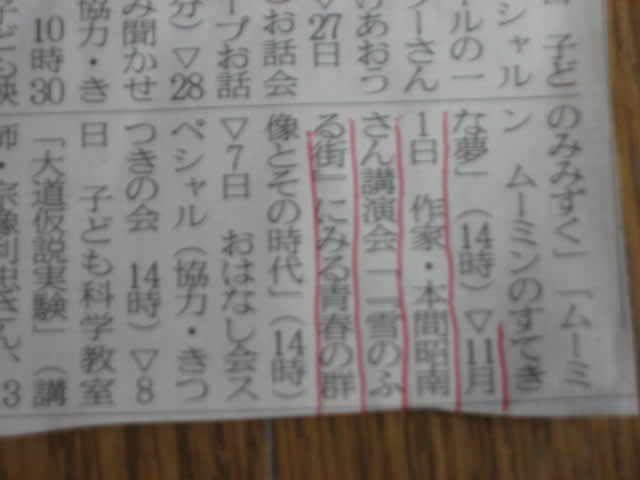 子ど
シャル
ールの一
ーさん
けあおっ
▽27日
お話会
ープお話
分）▽28
み聞かせ
協力・き
10時30
子ども映
のみみずく」「ムーミ
ン　ムーミンのすてき
な夢」（14時）▽11月
1日　作家・本間昭南
さん講演会「『雪のふ
る街』にみる青春の群
像とその時代」（14時）
▽7日　おはなし会ス
ペシャル（協力・きつ
つきの会　14時）▽8
日　子ども科学教室
「大道仮説実験」（講
師・宗像利忠さん、3